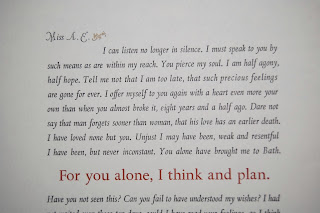 Miss A. E.
I can listen no longer in silence. I must speak to you by
such means as are within my reach. You pierce my soul. I am half agony,
half hope. Tell me not that I am too late, that such precious feelings
are gone for ever. I offer myself to you again with a heart even more your
own than when you almost broke it, eight years and a half ago. Dare not
say that man forgets sooner than woman, that his love has an earlier death.
I have loved none but you. Unjust I may have been, weak and resentful
I have been, but never inconstant. You alone have brought me to Bath.
For you alone, I think and plan.
Have you not seen this? Can you fail to have understood my wishes? I had